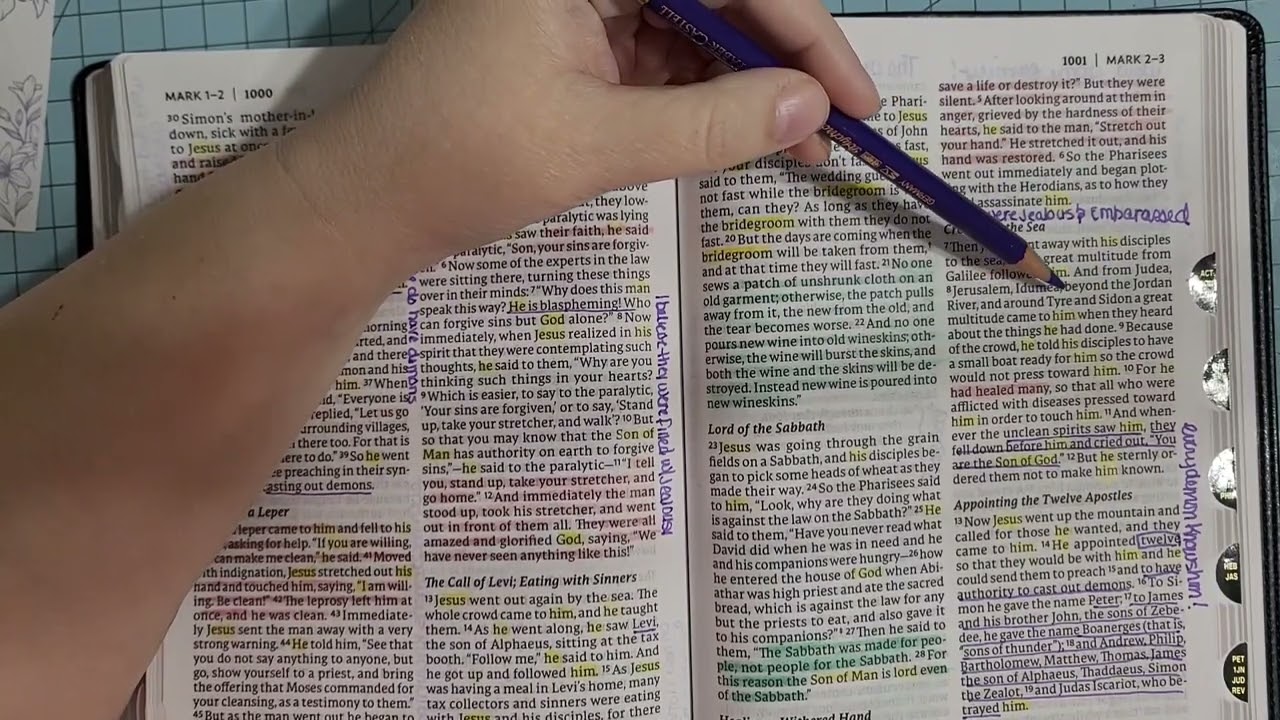 MARK 1–2 | 1000
30 Simon's mother-in-
down, sick with a
to Jesus at once
and raise
they low-
paralytic was lying
saw their faith, he said
"Son, your sins are forgiv-
en." 6 Now some of the experts in the law
were sitting there, turning these things
over in their minds: 7 "Why does this man
speak this way? He is blaspheming! Who
can forgive sins but God alone?" 8 Now
immediately, when Jesus realized in his
spirit that they were contemplating such
thoughts, he said to them, "Why are you
thinking such things in your hearts?
9 Which is easier, to say to the paralytic,
'Your sins are forgiven,' or to say, 'Stand
up, take your stretcher, and walk'? 10 But
so that you may know that the Son of
Man has authority on earth to forgive
sins,"—he said to the paralytic— 11 "I tell
you, stand up, take your stretcher, and
go home." 12 And immediately the man
stood up, took his stretcher, and went
out in front of them all. They were all
amazed and glorified God, saying, "We
have never seen anything like this!"
The Call of Levi; Eating with Sinners
13 Jesus went out again by the sea. The
whole crowd came to him, and he taught
them. 14 As he went along, he saw Levi,
the son of Alphaeus, sitting at the tax
booth. "Follow me," he said to him. And
he got up and followed him. 15 As Jesus
was having a meal in Levi's home, many
tax collectors and sinners were eating
with Jesus and his disciples, for there
morning
and there
mon and his
him. 37 When
"Everyone is
replied, "Let us go
surrounding villages,
there too. For that is
here to do." 39 So he went
preaching in their syn-
casting out demons.
a Leper
leper came to him and fell to his
asking for help. "If you are willing,
can make me clean," he said. 41 Moved
with indignation, Jesus stretched out his
hand and touched him, saying, "I am will-
ing. Be clean!" 42 The leprosy left him at
once, and he was clean. 43 Immediate-
ly Jesus sent the man away with a very
strong warning. 44 He told him, "See that
you do not say anything to anyone, but
go, show yourself to a priest, and bring
the offering that Moses commanded for
your cleansing, as a testimony to them."
45 But as the man went out he began to
do have demons
they were filled w/ Jealousy
1001 | MARK 2–3
Phari-
to Jesus
of John
fast,
your disciples don't
said to them, "The wedding
not fast while the bridegroom is
them, can they? As long as they have
the bridegroom with them they do not
fast. 20 But the days are coming when the
bridegroom will be taken from them,
and at that time they will fast. 21 No one
sews a patch of unshrunk cloth on an
old garment; otherwise, the patch pulls
away from it, the new from the old, and
the tear becomes worse. 22 And no one
pours new wine into old wineskins; oth-
erwise, the wine will burst the skins, and
both the wine and the skins will be de-
stroyed. Instead new wine is poured into
new wineskins."
Lord of the Sabbath
23 Jesus was going through the grain
fields on a Sabbath, and his disciples be-
gan to pick some heads of wheat as they
made their way. 24 So the Pharisees said
to him, "Look, why are they doing what
is against the law on the Sabbath?" 25 He
said to them, "Have you never read what
David did when he was in need and he
and his companions were hungry— 26 how
he entered the house of God when Abi-
athar was high priest and ate the sacred
bread, which is against the law for any
but the priests to eat, and also gave it
to his companions?" 27 Then he said to
them, "The Sabbath was made for peo-
ple, not people for the Sabbath. 28 For
this reason the Son of Man is lord even
of the Sabbath."
Withered Hand
save a life or destroy it?" But they were
silent. 5 After looking around at them in
anger, grieved by the hardness of their
hearts, he said to the man, "Stretch out
your hand." He stretched it out, and his
hand was restored. 6 So the Pharisees
went out immediately and began plot-
ting with the Herodians, as to how they
assassinate him.
were jealous & Embarassed
the Sea
7 Then away with his disciples
to the sea, great multitude from
Galilee followed him. And from Judea,
8 Jerusalem, Idumea, beyond the Jordan
River, and around Tyre and Sidon a great
multitude came to him when they heard
about the things he had done. 9 Because
of the crowd, he told his disciples to have
a small boat ready for him so the crowd
would not press toward him. 10 For he
had healed many, so that all who were
afflicted with diseases pressed toward
him in order to touch him. 11 And when-
ever the unclean spirits saw him, they
fell down before him and cried out, "You
are the Son of God." 12 But he sternly or-
dered them not to make him known.
Appointing the Twelve Apostles
13 Now Jesus went up the mountain and
called for those he wanted, and they
came to him. 14 He appointed twelve
so that they would be with him and he
could send them to preach 15 and to have
authority to cast out demons. 16 To Si-
mon he gave the name Peter; 17 to James
and his brother John, the sons of Zebe-
dee, he gave the name Boanerges (that is,
"sons of thunder"); 18 and Andrew, Philip,
Bartholomew, Matthew, Thomas, James
the son of Alphaeus, Thaddaeus, Simon
the Zealot, 19 and Judas Iscariot, who be-
trayed him.
every demon knows him!
ACT
PHI
HEB
JAS
PET
1JN
JUD
REV
FABER-CASTELL